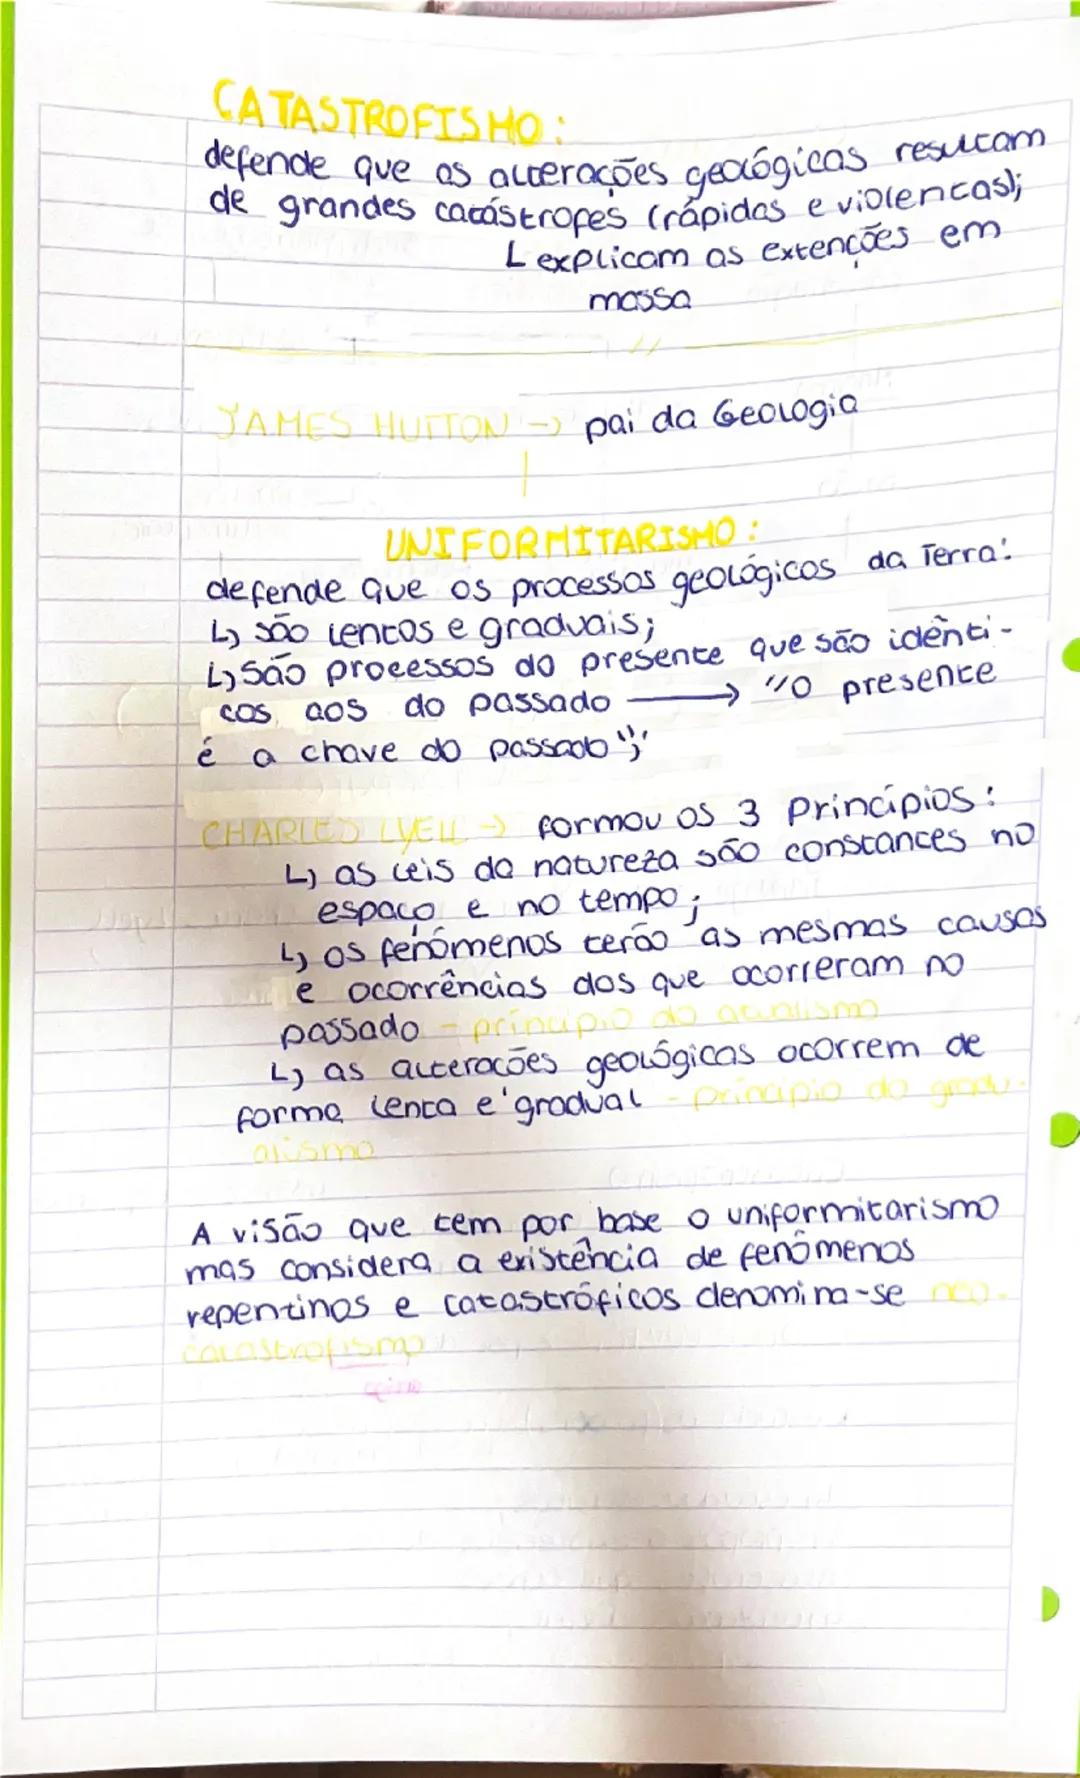 CATASTROFISMO:
defende que as alterações geológicas resultam
de grandes catástrofes (rápidas e violentas);
L explicam as extenções em
massa
JAMES HUTTON → pai da Geologia
UNIFORMITARISMO:
defende que os processos geológicos da Terra:
↳ são lentos e graduais;
↳ são processos do presente que são idênti-
cos aos do passado → "O presente
é a chave do passado";
CHARLES LYELL → formou os 3 princípios:
↳ as leis da natureza são constantes no
espaço e no tempo;
↳ os fenómenos terão as mesmas causas
e ocorrências dos que ocorreram no
passado - princípio do atualismo
↳ as alterações geológicas ocorrem de
forma lenta e gradual - princípio do gradu-
alismo
A visão que tem por base o uniformitarismo
mas considera a existência de fenómenos
repentinos e catastróficos denomina-se neo-
catastrofismo